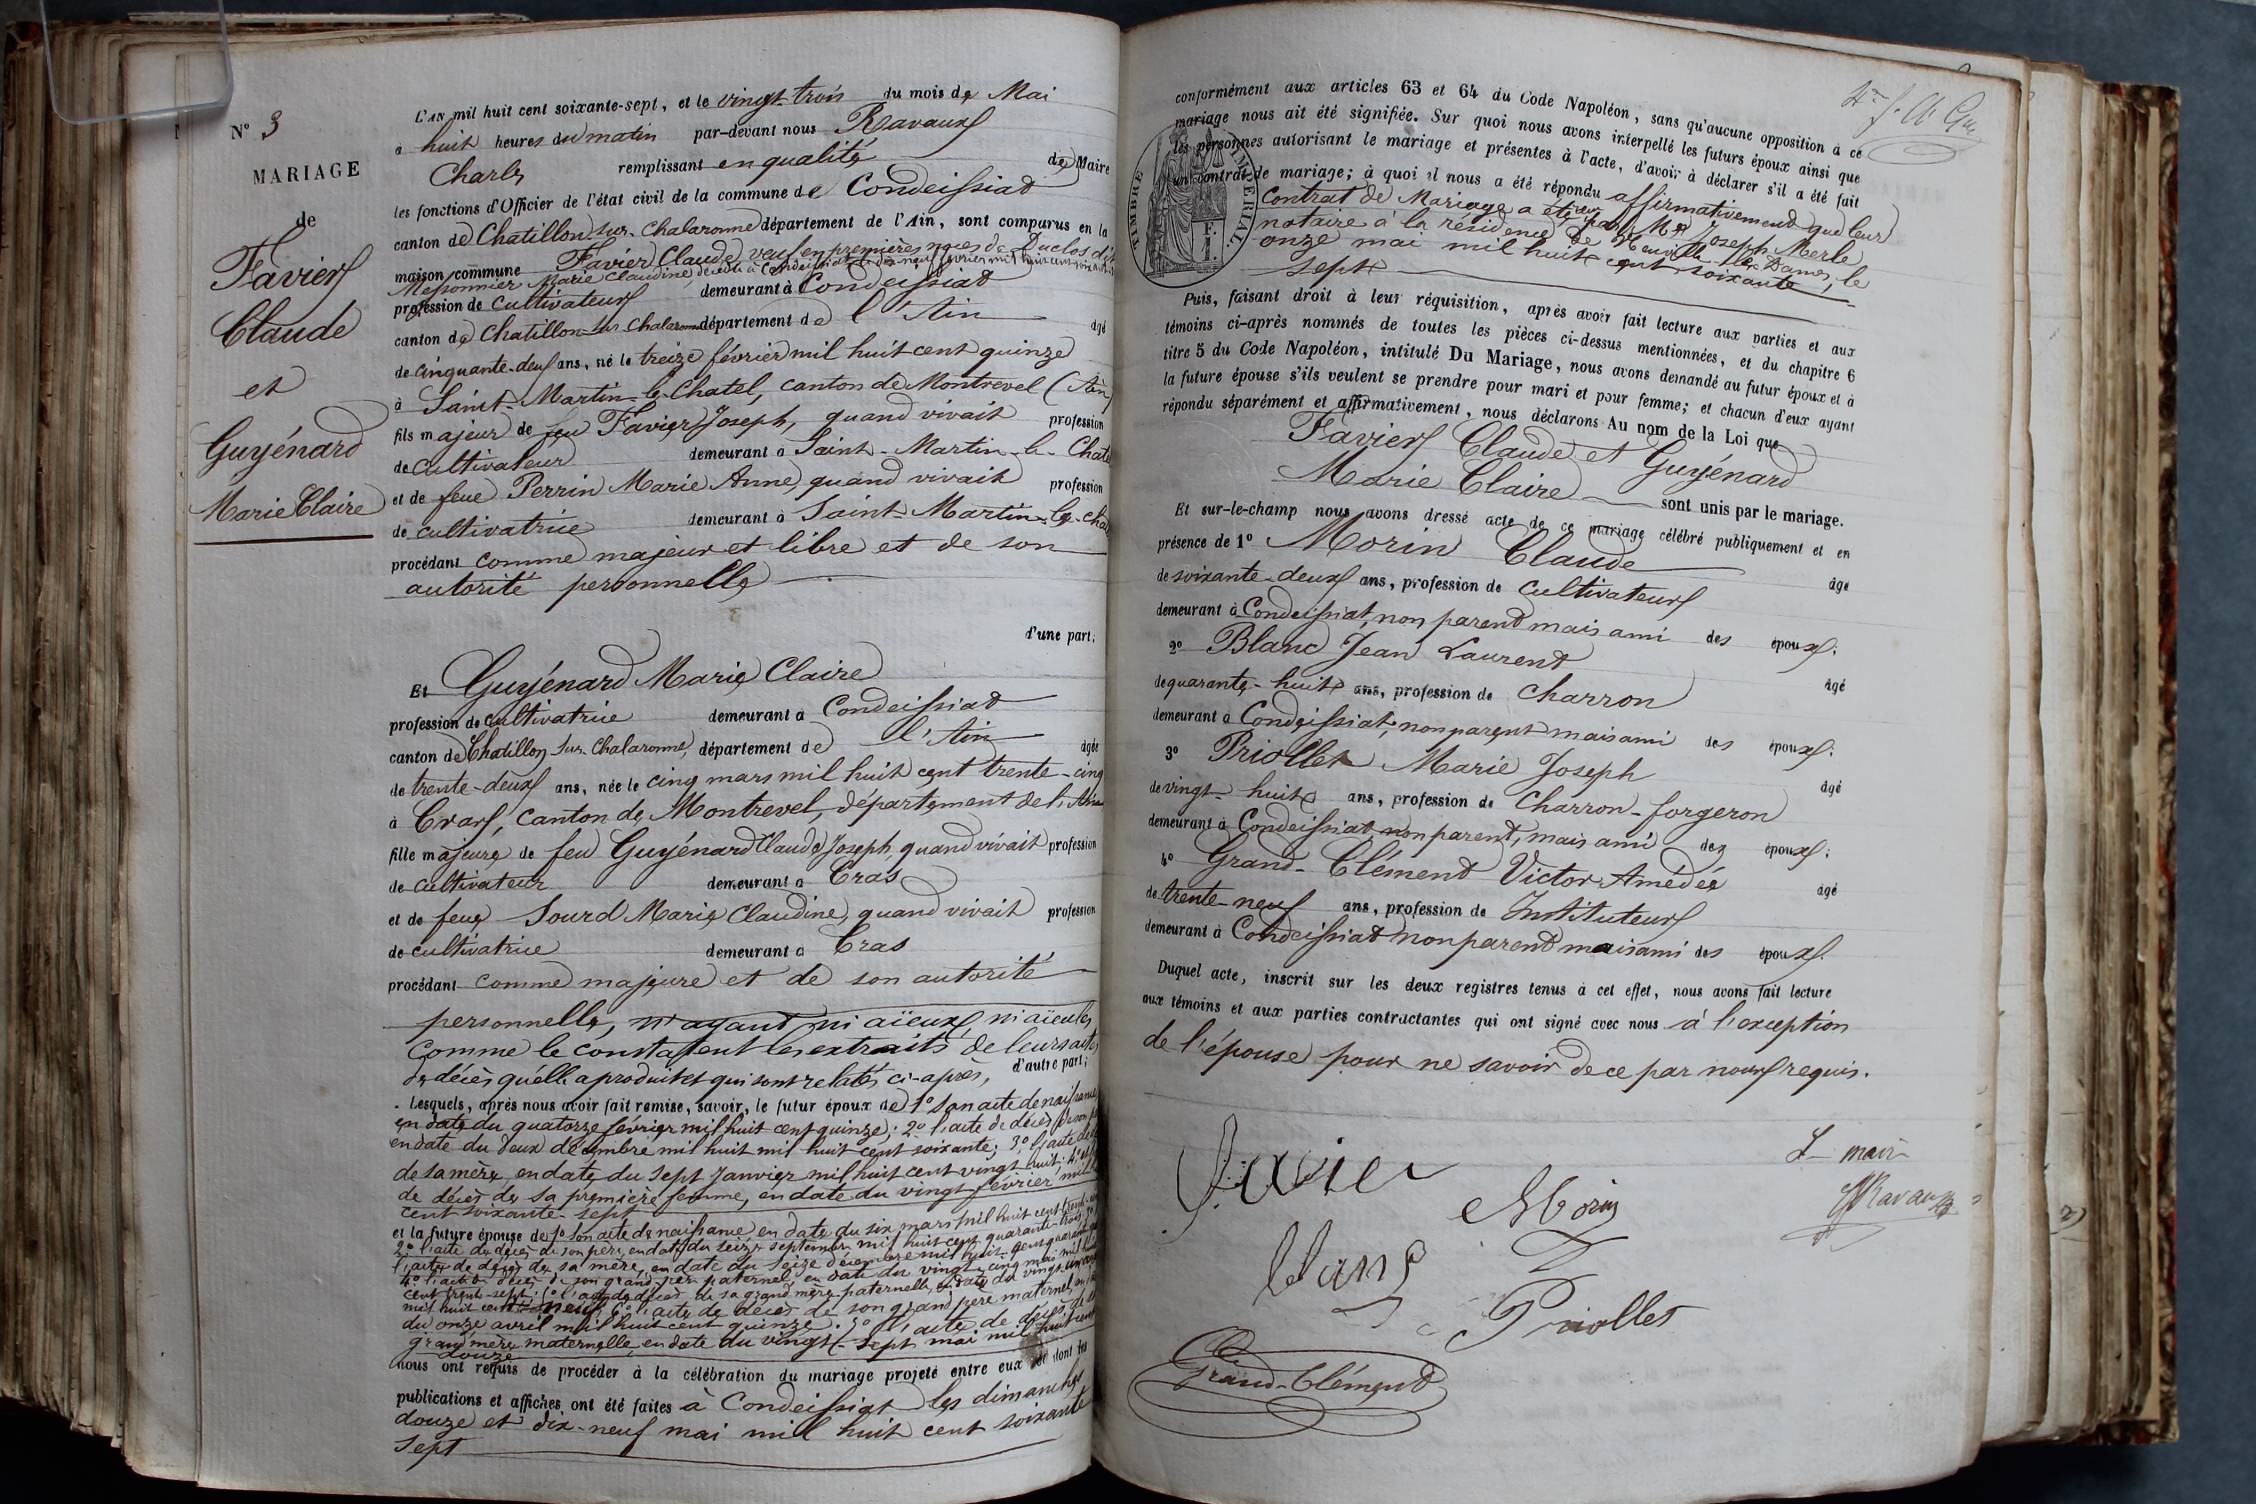 N° 3
MARIAGE
de
Favier
Claude
et
Guyénard
Marie Claire
L'AN mil huit cent soixante-sept, et le vingt trois du mois de Mai
à huit heures du matin par-devant nous Ravaux
Charles remplissant en qualité de Maire
les fonctions d'Officier de l'état civil de la commune de Condeissiat
canton de Chatillon sur Chalaronne département de l'Ain, sont comparus en la
maison commune Favier Claude veuf en premières noces de Duclos dite
Messonnier Marie Claudine, décédée à Condeissiat le dix neuf février mil huit cent soixante
profession de cultivateur demeurant à Condeissiat
canton de Chatillon sur Chalaronne département de l'Ain âgé
de cinquante-deux ans, né le treize février mil huit cent quinze
à Saint-Martin-le-Chatel, canton de Montrevel (Ain)
fils majeur de feu Favier Joseph, quand vivait profession
de cultivateur demeurant à Saint-Martin-le-Chatel
et de feue Perrin Marie Anne, quand vivait profession
de cultivatrice demeurant à Saint-Martin-le-Chatel
procédant comme majeur et libre et de son
autorité personnelle
d'une part;
Et Guyénard Marie Claire
profession de cultivatrice demeurant à Condeissiat
canton de Chatillon sur Chalaronne, département de l'Ain âgée
de trente-deux ans, née le cinq mars mil huit cent trente-cinq
à Cras, canton de Montrevel, département de l'Ain
fille majeure de feu Guyénard Claude Joseph, quand vivait profession
de cultivateur demeurant à Cras
et de feue Sourd Marie Claudine, quand vivait profession
de cultivatrice demeurant à Cras
procédant comme majeure et de son autorité
personnelle, n'ayant ni aïeux, ni aïeules
comme le constatent les extraits de leurs actes
de décès qu'elle a produits et qui sont relatés ci-après, d'autre part;
Lesquels, après nous avoir fait remise, savoir, le futur époux de 1° son acte de naissance
en date du quatorze février mil huit cent quinze; 2° l'acte de décès de son père
en date du deux décembre mil huit mil huit cent soixante; 3° l'acte de décès
de sa mère, en date du sept janvier mil huit cent vingt huit; 4°
de décès de sa première femme, en date du vingt février mil huit
cent soixante-sept
et la future épouse de 1° son acte de naissance, en date du six mars mil huit cent trente-cinq
2° l'acte de décès de son père, en date du seize septembre mil huit cent quarante-trois; 3°
l'acte de décès de sa mère, en date du seize décembre mil huit cent quarante
4° l'acte de décès de son grand père paternel, en date du vingt-cinq mai mil huit
cent trente-sept; 5° l'acte de décès de sa grand mère paternelle, en date du vingt
mil huit cent neuf; 6° l'acte de décès de son grand père maternel, en date
du onze avril mil huit cent quinze; 7° l'acte de décès de sa
grand mère maternelle, en date du vingt-sept mai mil huit cent
douze
nous ont requis de procéder à la célébration du mariage projeté entre eux et dont les
publications et affiches ont été faites à Condeissiat les dimanches
douze et dix-neuf mai mil huit cent soixante
sept
TIMBRE IMPERIAL
conformément aux articles 63 et 64 du Code Napoléon, sans qu'aucune opposition à ce
mariage nous ait été signifiée. Sur quoi nous avons interpellé les futurs époux ainsi que
les personnes autorisant le mariage et présentes à l'acte, d'avoir à déclarer s'il a été fait
un contrat de mariage; à quoi il nous a été répondu affirmativement que leur
contrat de Mariage a été reçu par Me Joseph Merle
notaire à la résidence de Neuville les Dames, le
onze mai mil huit cent soixante
sept
Puis, faisant droit à leur réquisition, après avoir fait lecture aux parties et aux
témoins ci-après nommés de toutes les pièces ci-dessus mentionnées, et du chapitre 6
titre 5 du Code Napoléon, intitulé Du Mariage, nous avons demandé au futur époux et à
la future épouse s'ils veulent se prendre pour mari et pour femme; et chacun d'eux ayant
répondu séparément et affirmativement, nous déclarons Au nom de la Loi que
Favier Claude et Guyénard
Marie Claire sont unis par le mariage.
Et sur-le-champ nous avons dressé acte de ce mariage célébré publiquement et en
présence de 1° Morin Claude âgé
de soixante-deux ans, profession de cultivateur
demeurant à Condeissiat, non parent mais ami des époux;
2° Blanc Jean Laurent âgé
de quarante-huit ans, profession de charron
demeurant à Condeissiat, non parent mais ami des époux;
3° Priollet Marie Joseph âgé
de vingt-huit ans, profession de Charron-forgeron
demeurant à Condeissiat, non parent, mais ami des époux;
4° Grand-Clément Victor Amédée âgé
de trente-neuf ans, profession de Instituteur
demeurant à Condeissiat non parent mais ami des époux.
Duquel acte, inscrit sur les deux registres tenus à cet effet, nous avons fait lecture
aux témoins et aux parties contractantes qui ont signé avec nous à l'exception
de l'épouse pour ne savoir de ce par nous requis.
Favier
Morin
Le maire
Ravaux
Blanc
Priollet
Grand-Clément